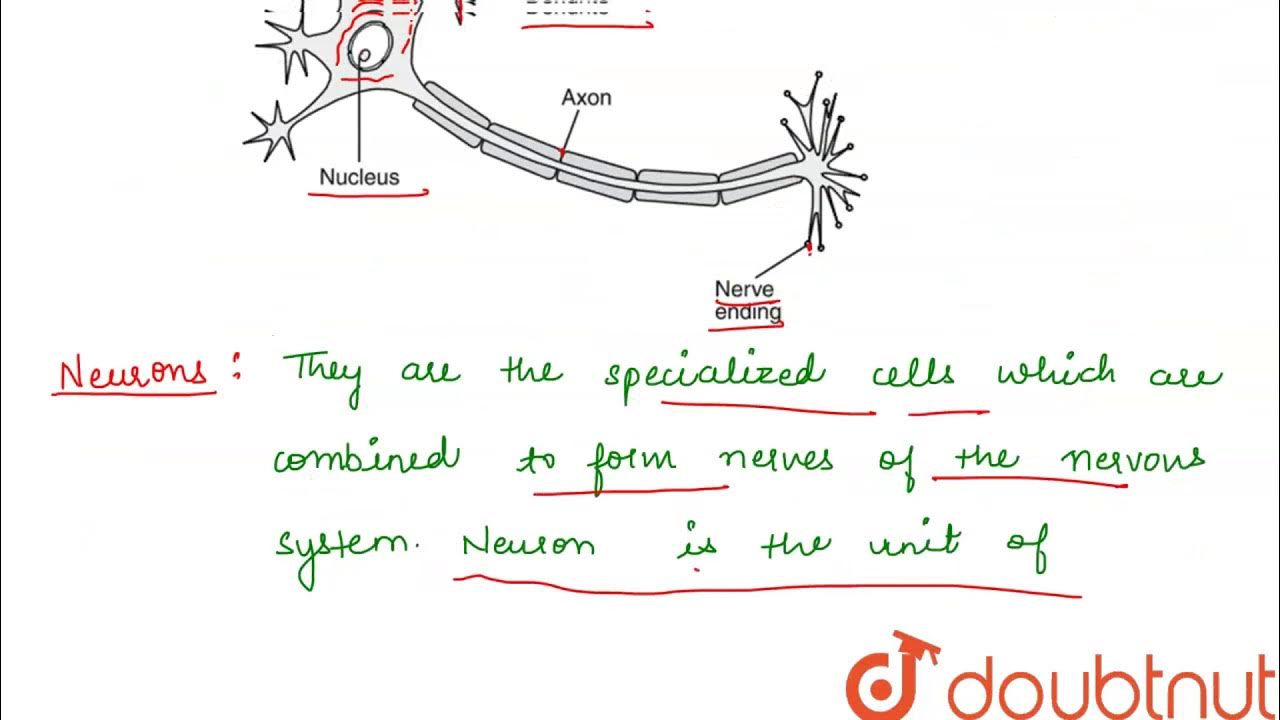 Axon
Nucleus
Nerve
ending
Neurons: They are the specialized cells which are
combined to form nerves of the nervous
system. Neuron is the unit of
doubtnut